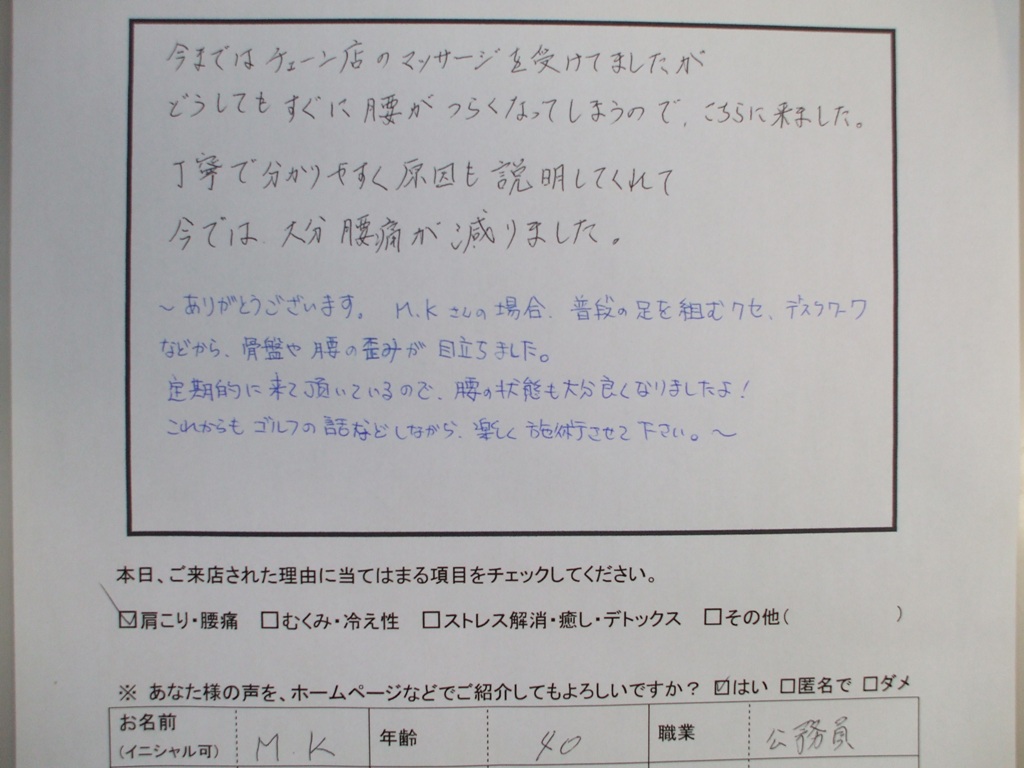 今まではチェーン店のマッサージを受けてましたが
どうしてもすぐに腰がつらくなってしまうので、こちらに来ました。
丁寧で分かりやすく原因も説明してくれて
今では、大分腰痛が減りました。
～ありがとうございます。 M.Kさんの場合、普段の足を組むクセ、デスクワーク
などから、骨盤や腰の歪みが目立ちました。
定期的に来て頂いているので、腰の状態も大分良くなりましたよ！
これからもゴルフの話などしながら、楽しく施術させて下さい。～
本日、ご来店された理由に当てはまる項目をチェックしてください。
☑肩こり・腰痛 □むくみ・冷え性 □ストレス解消・癒し・デトックス □その他( )
※ あなた様の声を、ホームページなどでご紹介してもよろしいですか？ ☑はい □匿名で □ダメ
お名前 (イニシャル可) M.K 年齢 40 職業 公務員